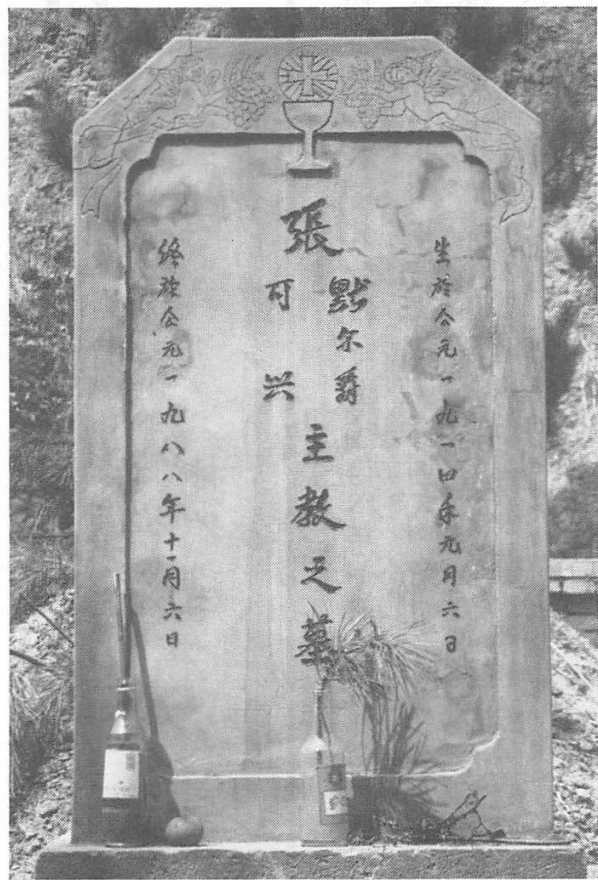 生於公元一九一四年九月六日
張
默尔爵
可兴
主教之墓
終於公元一九八八年十一月六日